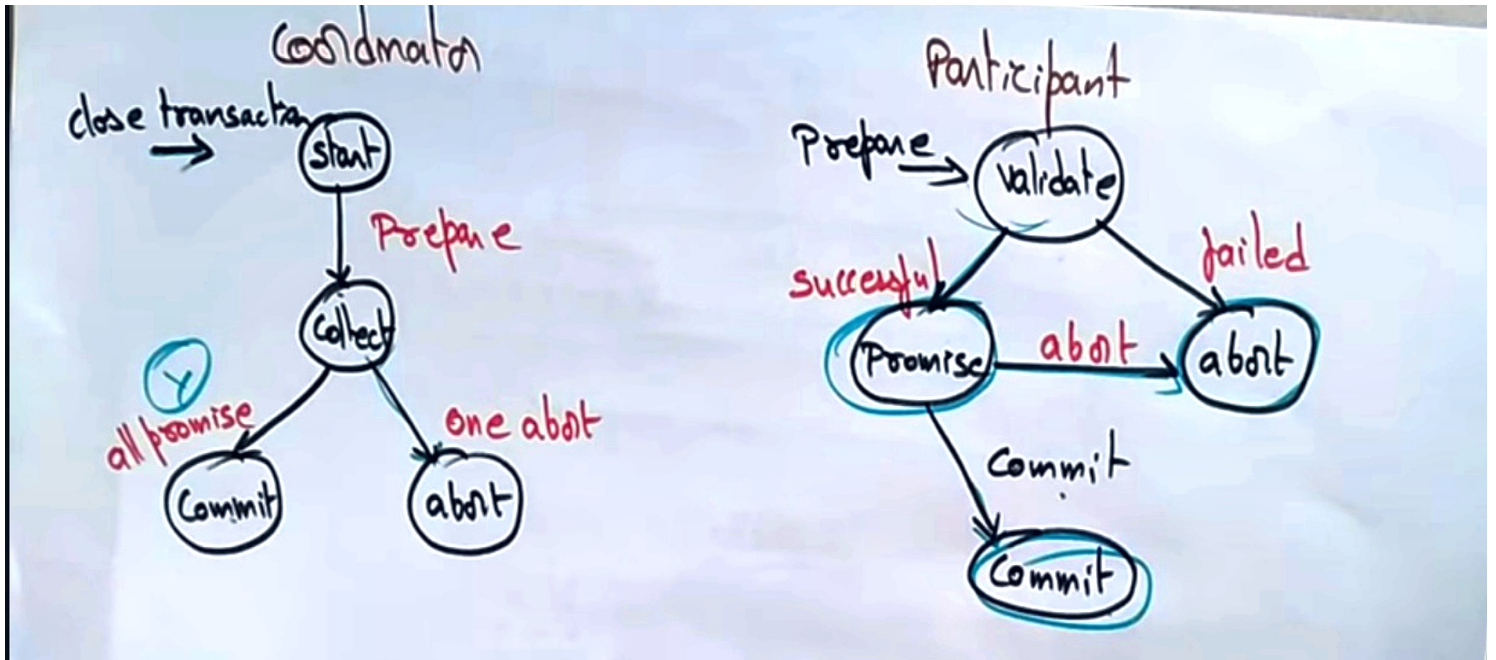 Coordinator
close transaction
start
Prepare
Collect
Y
all promise
one abort
Commit
abort
Participant
Prepare
validate
successful
failed
Promise
abort
abort
Commit
Commit